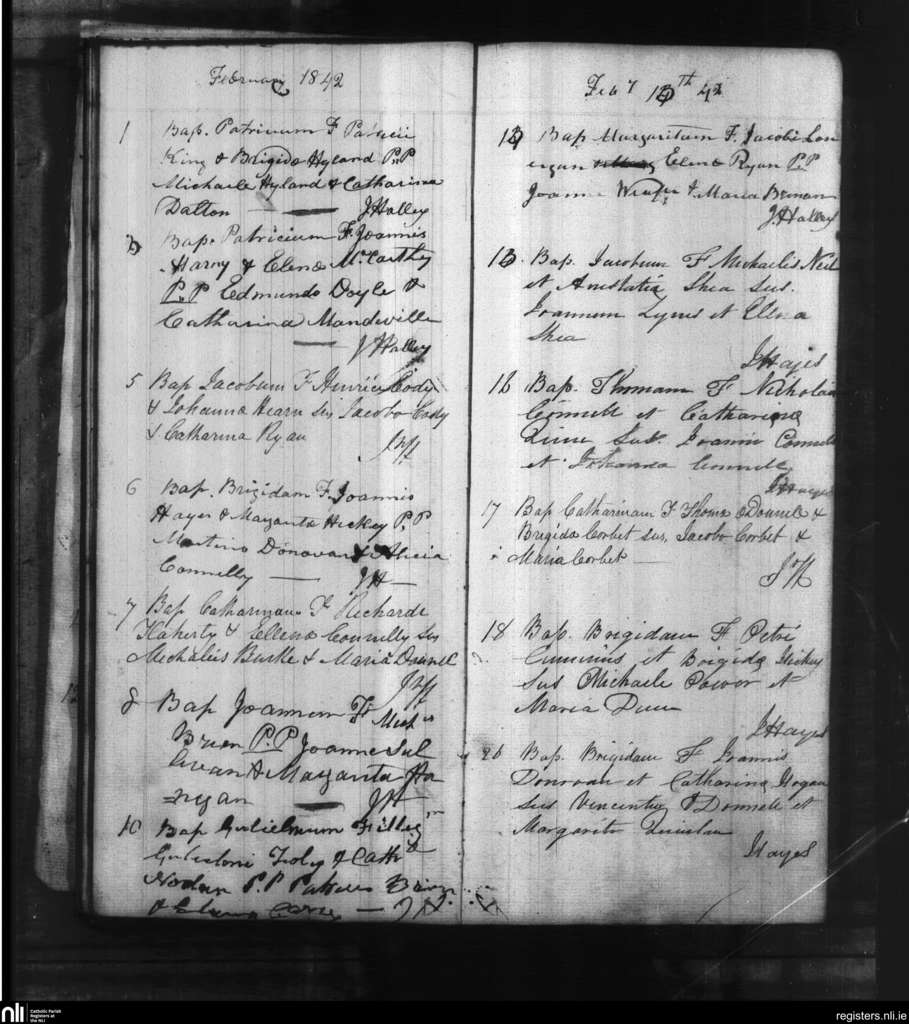 February 1842
1 Bap. Patricium F Patricii
King & Brigida Hyland P.P
Michaele Hyland & Catharina
Dalton — J Halley
Bap. Patricium F. Joannis
Harny & Elena McCarthy
P.P Edmundo Doyle &
Catharina Mandeville
— J Halley
5 Bap Jacobum F Henrici Cody
& Johanna Hearn sus Jacobo Cody
& Catharina Ryan
6 Bap. Brigidam F. Joannis
Hayes & Marganta Hickey P.P
Martino Donovan & Alicia
Connelly — JH —
7 Bap Catharinam F Richardi
Flaherty & Ellena Connelly sus
Michaleis Burke & Maria Donnell
8 Bap Joannem F Mich is
Brien P.P Joanne Sul
livan & Marganta Ha
=negan — JH —
10 Bap Gulielmum
Foley & Cath
P.P Patricio
&
Feby 42
Bap Margaritam F. Jacobi Lon
ergan Elena Ryan P.P
Joanne & Maria Brenan
J. Halley
13. Bap. Jacobum F Michaelis Neil
et Anastatia Shea sus.
Joannem Lyns et Ellena
Shea
J Hayes
16 Bap. Thomam F Nicholai
Connell et Catharina
Quinn Sus. Joanni Connell
et Johanna Connell
J Hayes
17 Bap Catharinam F Thomæ O Donnell &
Brigida Corbet sus. Jacobo Corbet &
Maria Corbet —
18 Bap. Brigidam F Petri
Cummins et Brigida Hickey
sus Michaele Power et
Maria Dunn
J Hayes
26 Bap. Brigidam F Joannis
Donovan et Catharina Hogan
sus Vincentio O'Donnell et
Margarita Quinlan
Hayes
nli
Catholic Parish
Registers at
the NLI
registers.nli.ie